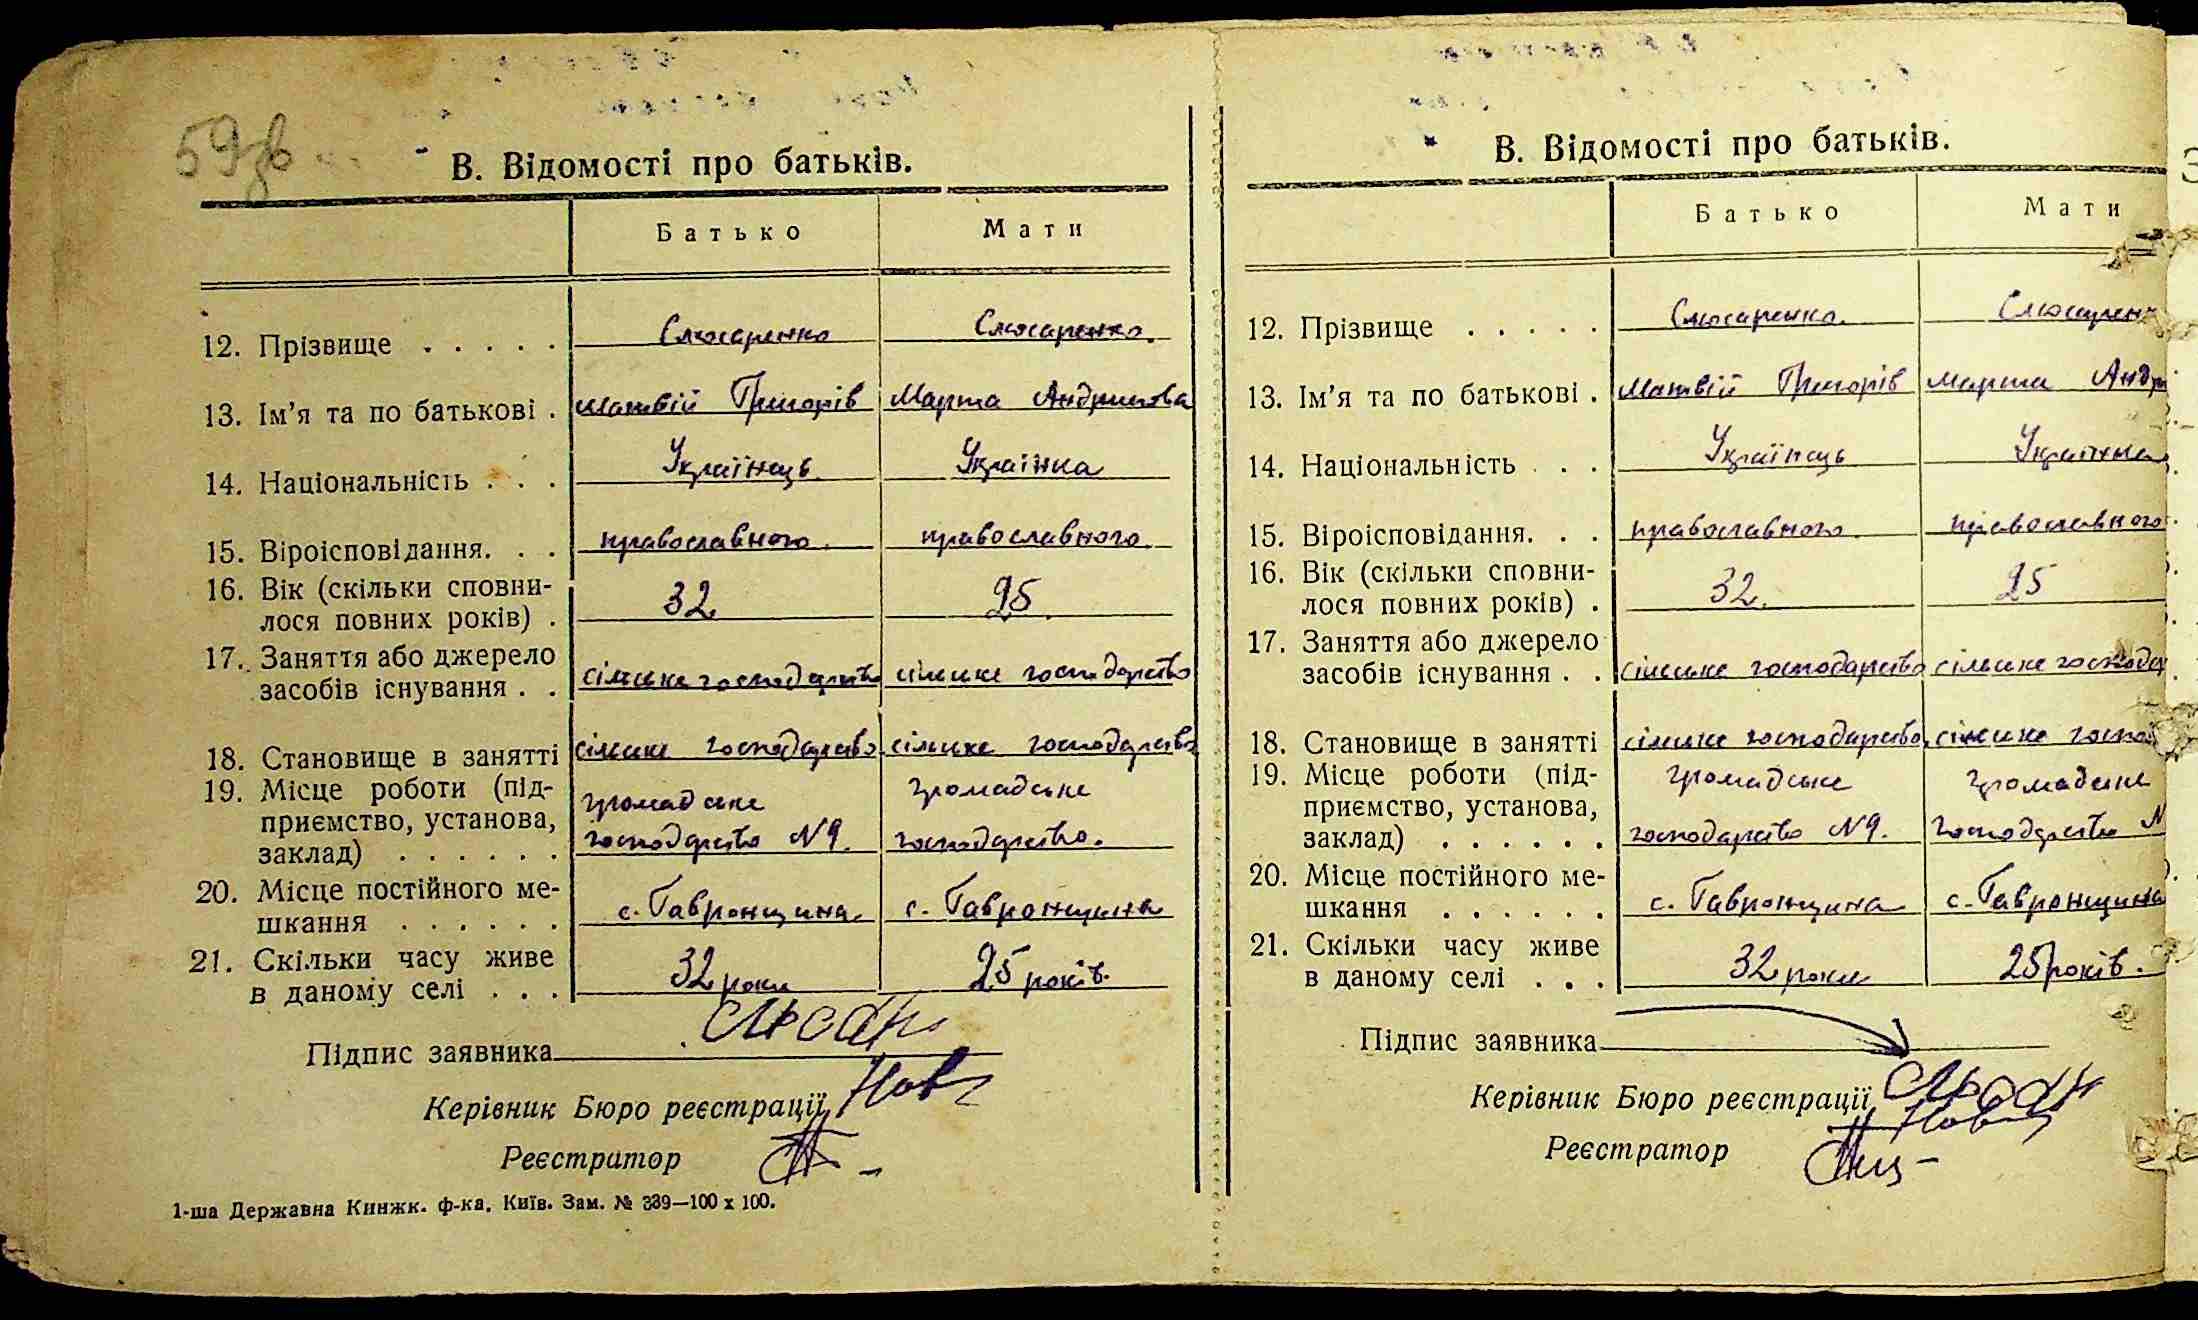 59зв
В. Відомості про батьків.
Батько Мати
12. Прізвище . . . . . Слюсаренко Слюсаренко.
13. Ім'я та по батькові . Матвій Григорів Марта Андриєва
14. Національність . . . Українець Українка
15. Віроісповідання. . . православного православного
16. Вік (скільки сповни-
лося повних років) . 32 25
17. Заняття або джерело
засобів існування . . сільське господарство сільське господарство
18. Становище в занятті сільське господарство сільське господарство
19. Місце роботи (під-
приємство, установа, громадське громадське
заклад) . . . . . . господарство N9. господарство.
20. Місце постійного ме-
шкання . . . . . . с. Гавронщина с. Гавронщина
21. Скільки часу живе
в даному селі . . . 32 роки 25 років.
Підпис заявника
Керівник Бюро реєстрації
Реєстратор
1-ша Державна Книжк. ф-ка. Київ. Зам. № 339—100 х 100.
В. Відомості про батьків.
Батько Мати
12. Прізвище . . . . . Слюсаренко. Слюсарен
13. Ім'я та по батькові . Матвій Григорів Марта Андри
14. Національність . . . Українець Українка
15. Віроісповідання. . . православного православного
16. Вік (скільки сповни-
лося повних років) . 32. 25
17. Заняття або джерело
засобів існування . . сільське господарство сільське господар
18. Становище в занятті сільське господарство сільське госпо
19. Місце роботи (під- громадське громадське
приємство, установа,
заклад) . . . . . . господарство N9. господарство N
20. Місце постійного ме-
шкання . . . . . . с. Гавронщина с. Гавронщина
21. Скільки часу живе
в даному селі . . . 32 роки 25 років.
Підпис заявника
Керівник Бюро реєстрації
Реєстратор